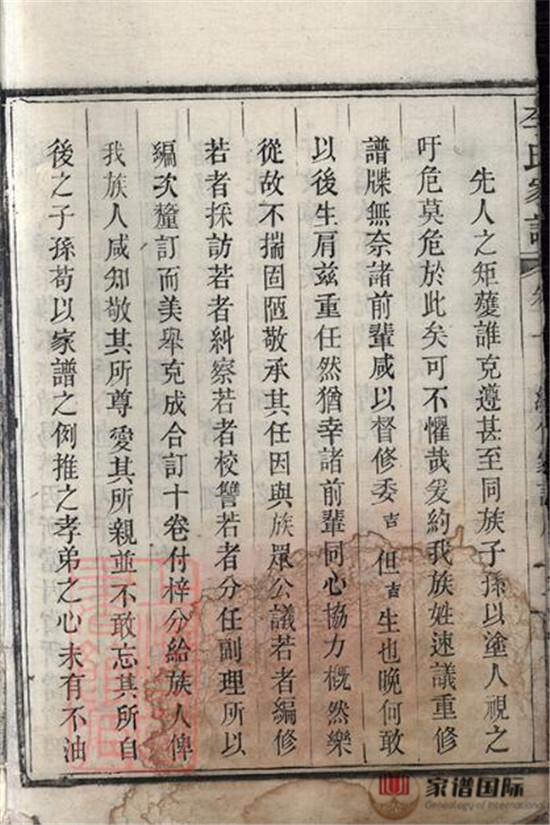 李氏家譜
先人之矩矱誰克遵甚至同族子孫以塗人視之
吁危莫危於此矣可不懼哉爰約我族姓速議重修
譜牒無奈諸前輩咸以督修委吉但吉生也晚何敢
以後生肩兹重任然猶幸諸前輩同心協力概然樂
從故不揣固陋敬承其任因與族眾公議若者編修
若者採訪若者糾察若者校讐若者分任副理所以
編次釐訂而美舉克成合訂十卷付梓分給族人俾
我族人咸知敬其所尊愛其所親並不敢忘其所自
後之子孫苟以家譜之例推之孝弟之心未有不油
家谱国际
Genealogy of International